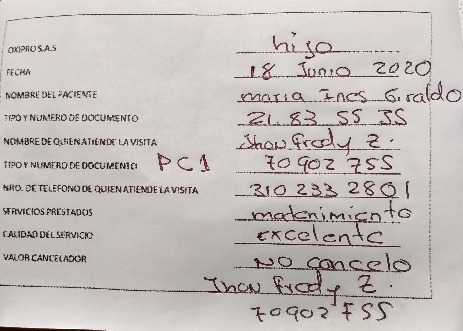 OXIPRO S.A.S hijo
FECHA 18 Junio 2020
NOMBRE DEL PACIENTE maria Ines Giraldo
TIPO Y NUMERO DE DOCUMENTO 21.83 55 35
NOMBRE DE QUIEN ATIENDE LA VISITA Jhon Fredy Z.
TIPO Y NUMERO DE DOCUMENTO PC1 70902755
NRO. DE TELEFONO DE QUIEN ATIENDE LA VISITA 310 233 2801
SERVICIOS PRESTADOS matenimiento
CALIDAD DEL SERVICIO Excelente
VALOR CANCELADOR NO cancelo
Jhon Fredy Z.
70902755